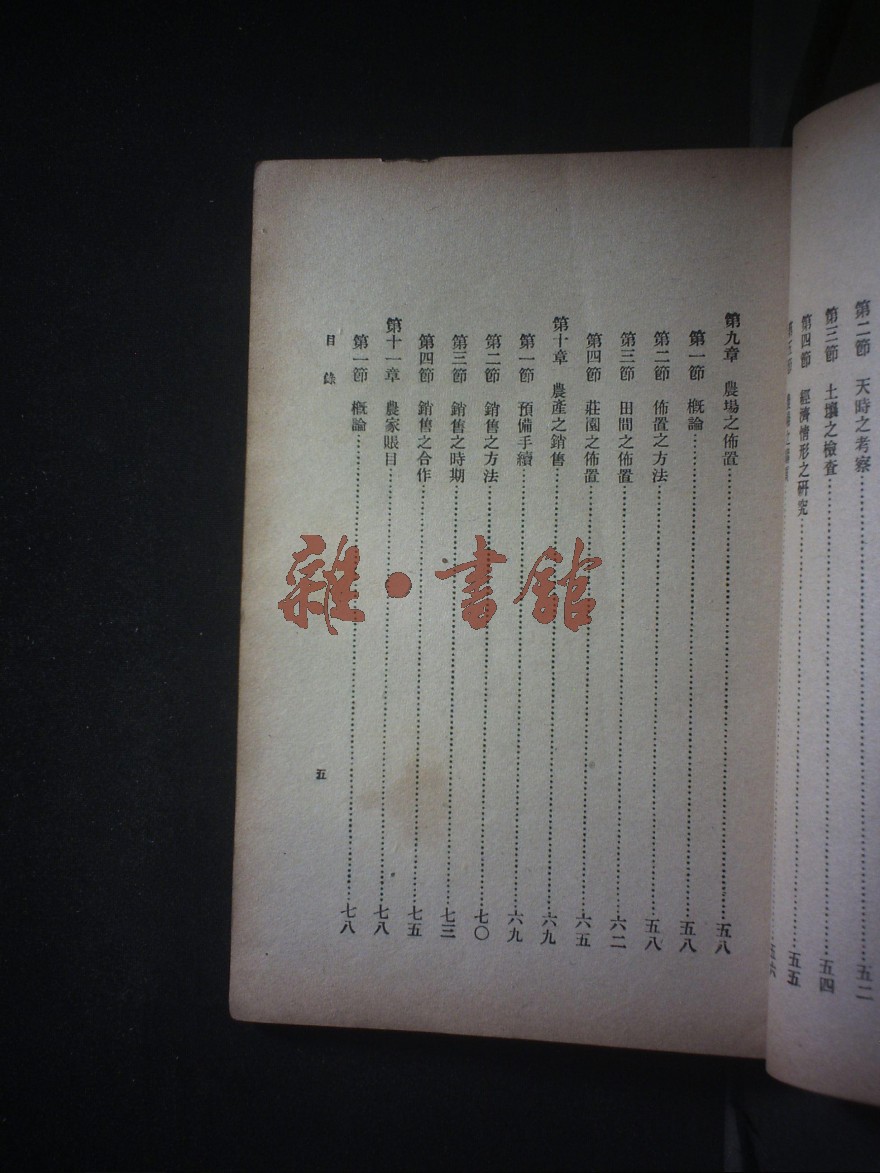 第二節　天時之考察……五二
第三節　土壤之檢查……五四
第四節　經濟情形之研究……五五
第五節……五六
第九章　農場之佈置……五八
第一節　概論……五八
第二節　佈置之方法……五八
第三節　田間之佈置……六二
第四節　莊園之佈置……六五
第十章　農產之銷售……六九
第一節　預備手續……六九
第二節　銷售之方法……七〇
第三節　銷售之時期……七三
第四節　銷售之合作……七五
第十一章　農家賬目……七八
第一節　概論……七八
目錄
五
雜·書館